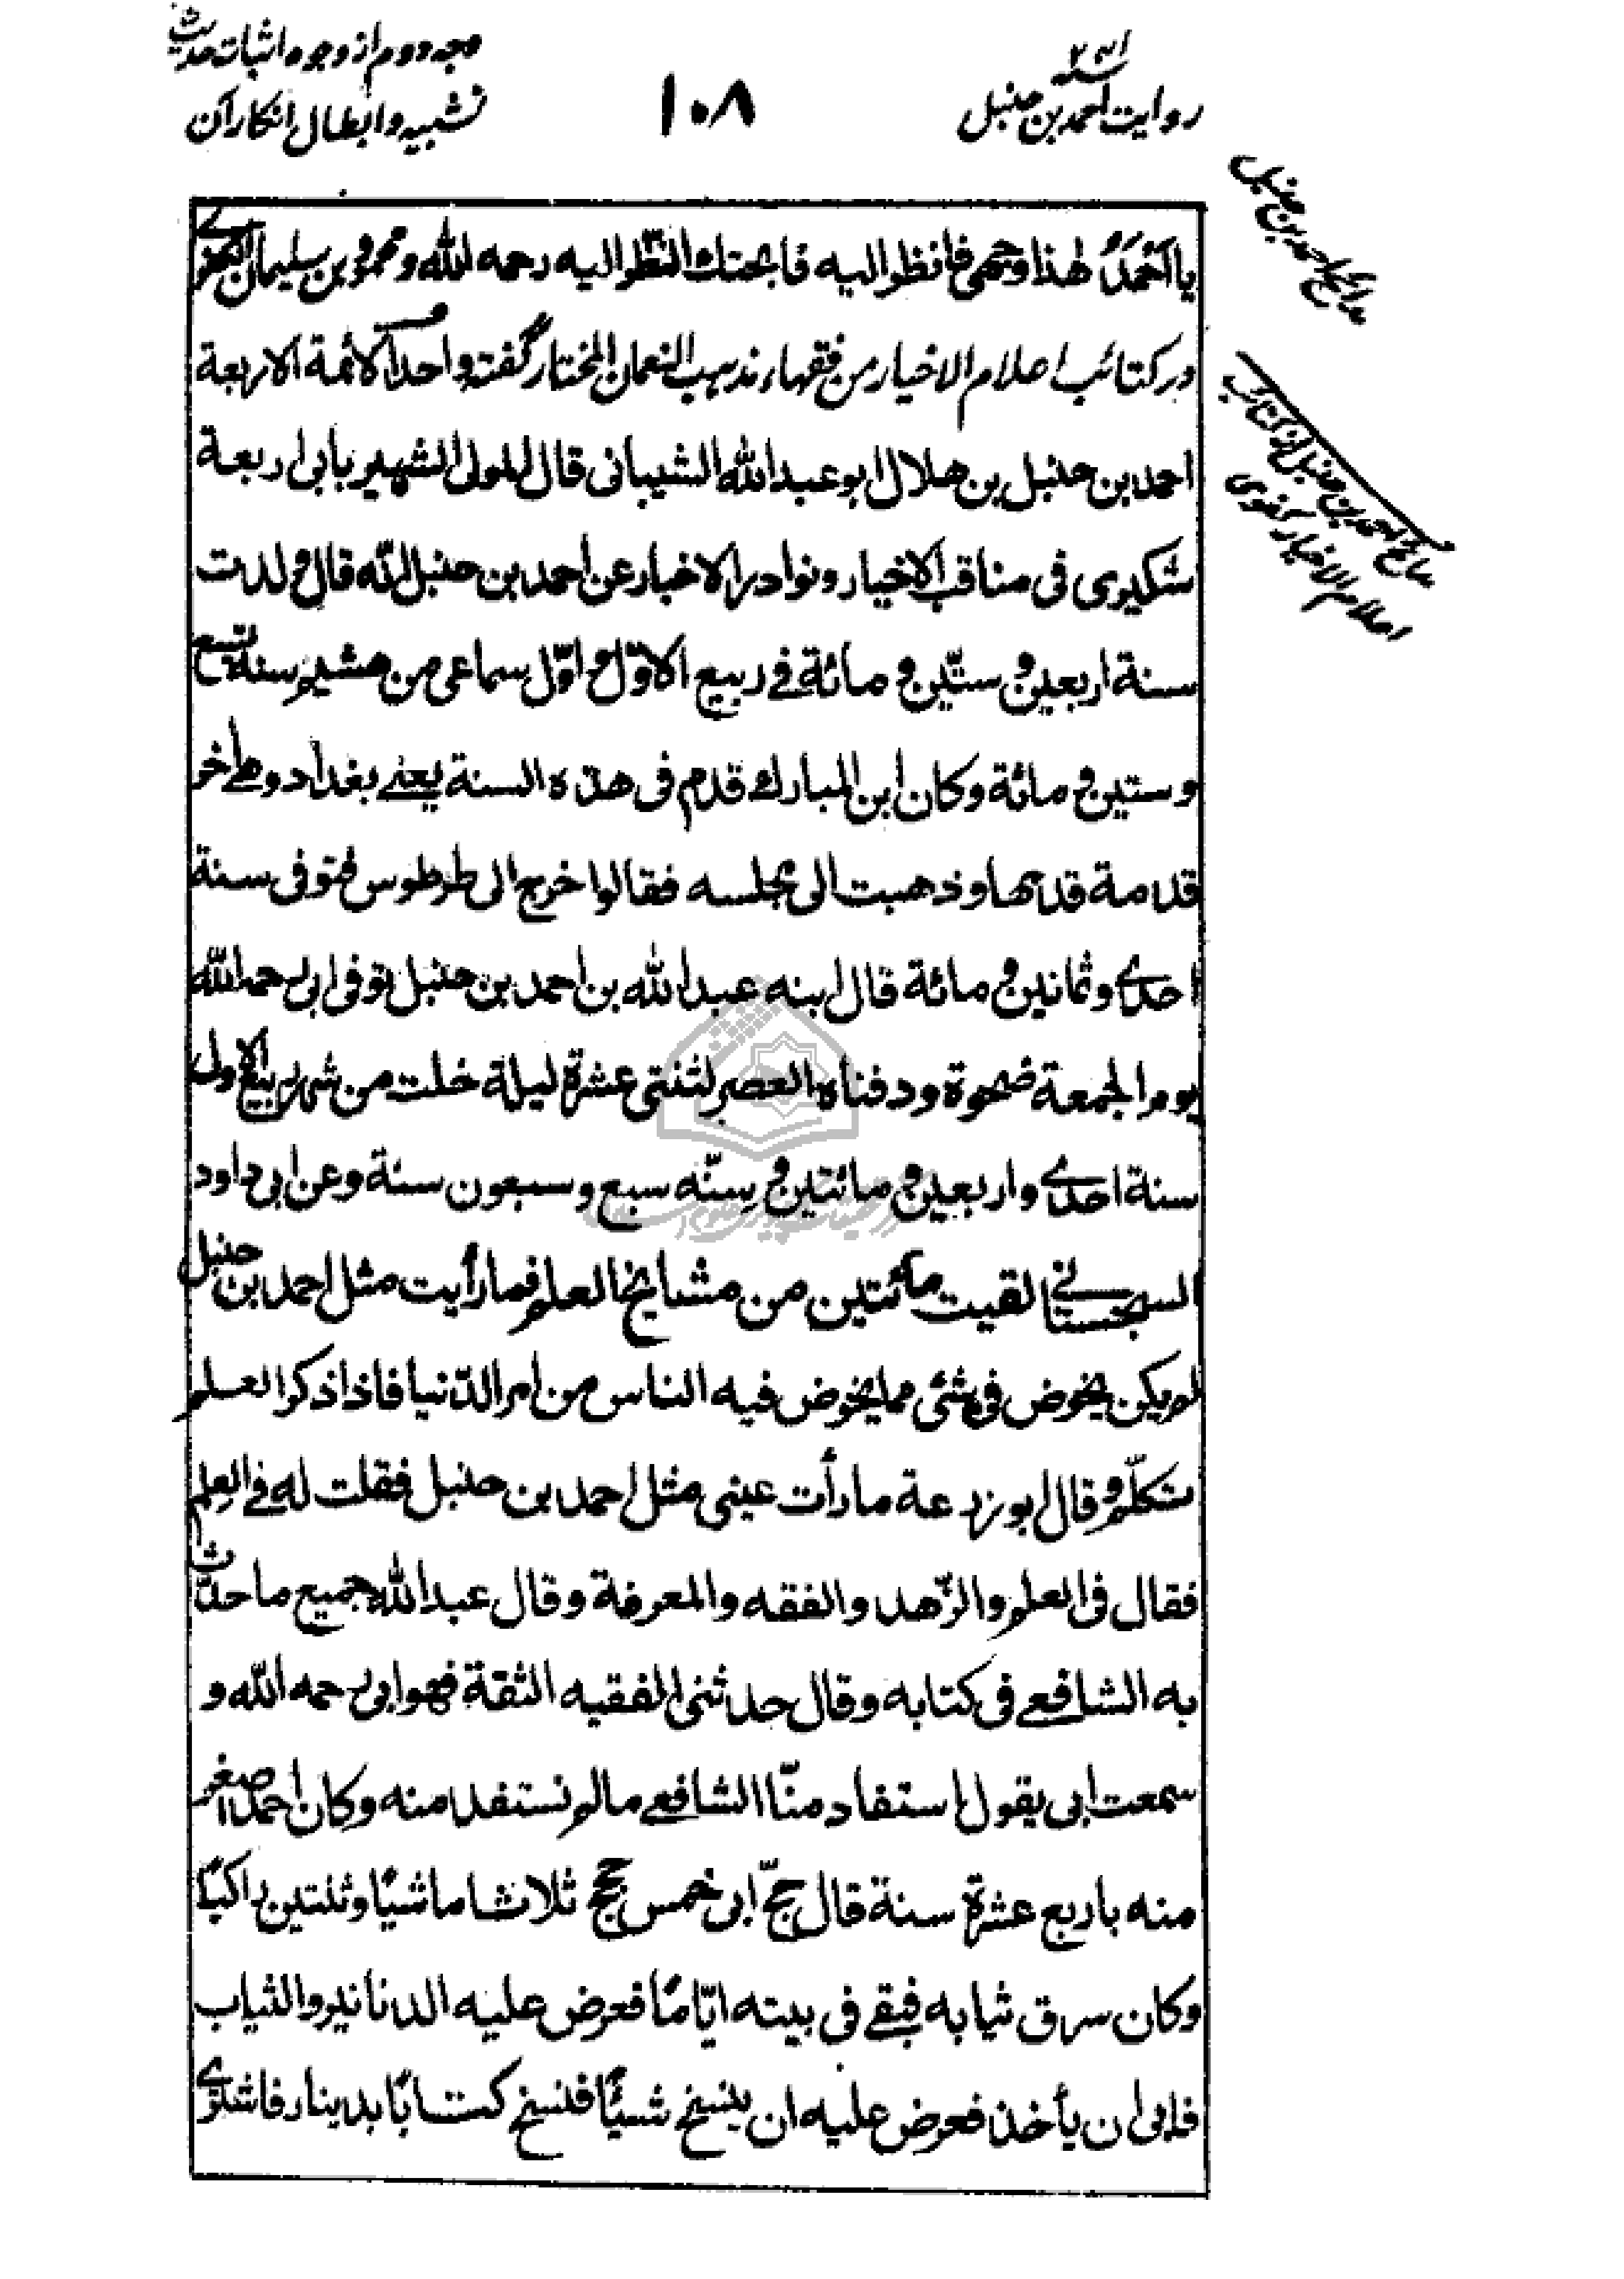 وجه دوم از وجوه اثبات حدیث
تشبیه و ابطال انکار آن
۱۰۸
۲۴۱
روایت احمد بن حنبل
مدایح احمد بن حنبل
مدایح احمد بن حنبل از کتائب
اعلام الاخیار کفوی
یا احمدُ هذا وجهی فانظر الیه فابحتك النظر الیه رحمه الله و محمود بن سلیمان الکفوی
در کتائب اعلام الاخیار من فقهاء مذهب النعمان المختار گفته و احد الائمة الاربعة
احمد بن حنبل بن هلال ابو عبد الله الشیبانی قال المولی الشهیر بابی اربعة
شکیری فی مناقب الاخیار و نوادر الاخبار عن احمد بن حنبل انّه قال ولدت
سنة اربعین و ستّین و مائة فی ربیع الاوّل و اوّل سماعی من هشیم سنة تسع
و ستین و مائة و کان ابن المبارك قدم فی هذه السنة یعنی بغداد و هی اخر
قدمة قدمها و ذهبت الی مجلسه فقالوا خرج الی طرطوس فتوفی سنة
احدی و ثمانین و مائة قال ابنه عبد الله بن احمد بن حنبل توفی ابی رحمه الله
یوم الجمعة ضحوة و دفناه العصر لثنتی عشرة لیلة خلت من شهر ربیع الاول
سنة احدی و اربعین و مائتین و سِنّه سبع و سبعون سنة و عن ابی داود
السجستانی القیت مائتین من مشایخ العلم فما رأیت مثل احمد بن حنبل
لم یکن یخوض فی شئی مما یخوض فیه الناس من امر الدّنیا فاذا ذکر العلم
تکلّم و قال ابو زرعة ما رأت عینی مثل احمد بن حنبل فقلت له فی العِلم
فقال فی العلم و الزّهد و الفقه و المعرفة و قال عبد الله جمیع ما حدّث
به الشافعی فی کتابه و قال حدثنی الفقیه الثقة فهو ابی رحمه الله و
سمعت ابی یقول استفاد منّا الشافعی مالم نستفد منه و کان احمد اصغر
منه باربع عشرة سنة قال حجّ ابی خمس حجج ثلاثا ماشیًا و ثنتین راکبًا
و کان سرق ثیابه فبقی فی بیته ایّامًا فعرض علیه الدنانیر و الثیاب
فابی ان یأخذ فعرض علیه ان ینسخ شیئًا فنسخ کتابًا بدینار فاشتری